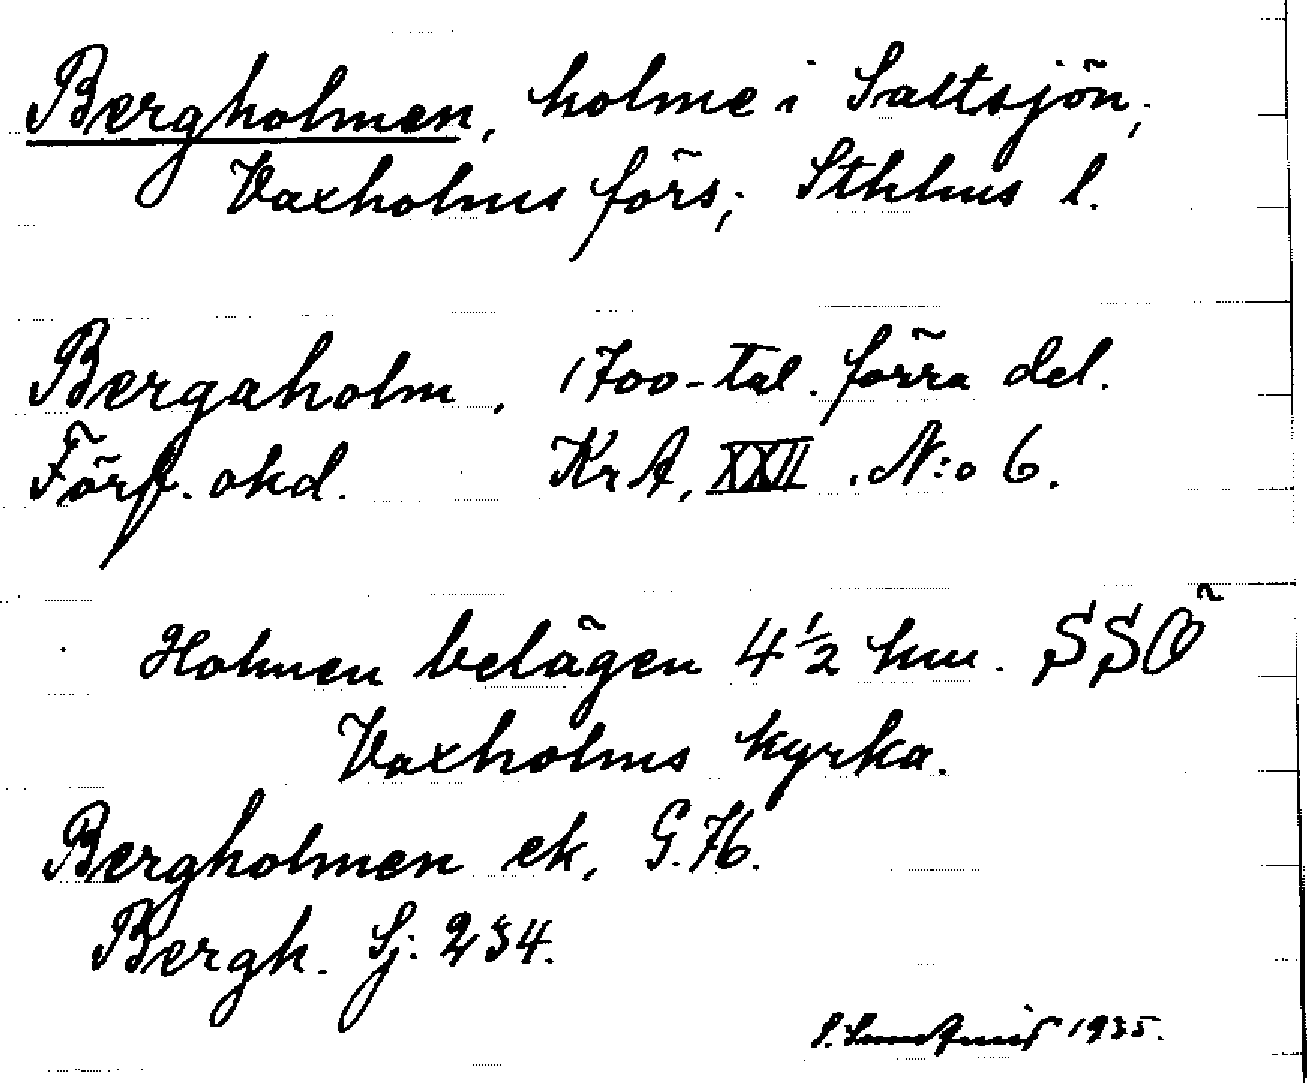 Bergholmen, holme i Saltsjön,
Vaxholms förs; Sthlms l.
Bergaholm, 1700-tal. förra del.
Förf. okd. KrA, XXII. N:o 6.
Holmen belägen 4 1/2 km. SSO
Vaxholms kyrka.
Bergholmen ek, G. 76.
Bergh. Sj. 234.
S. 1935.